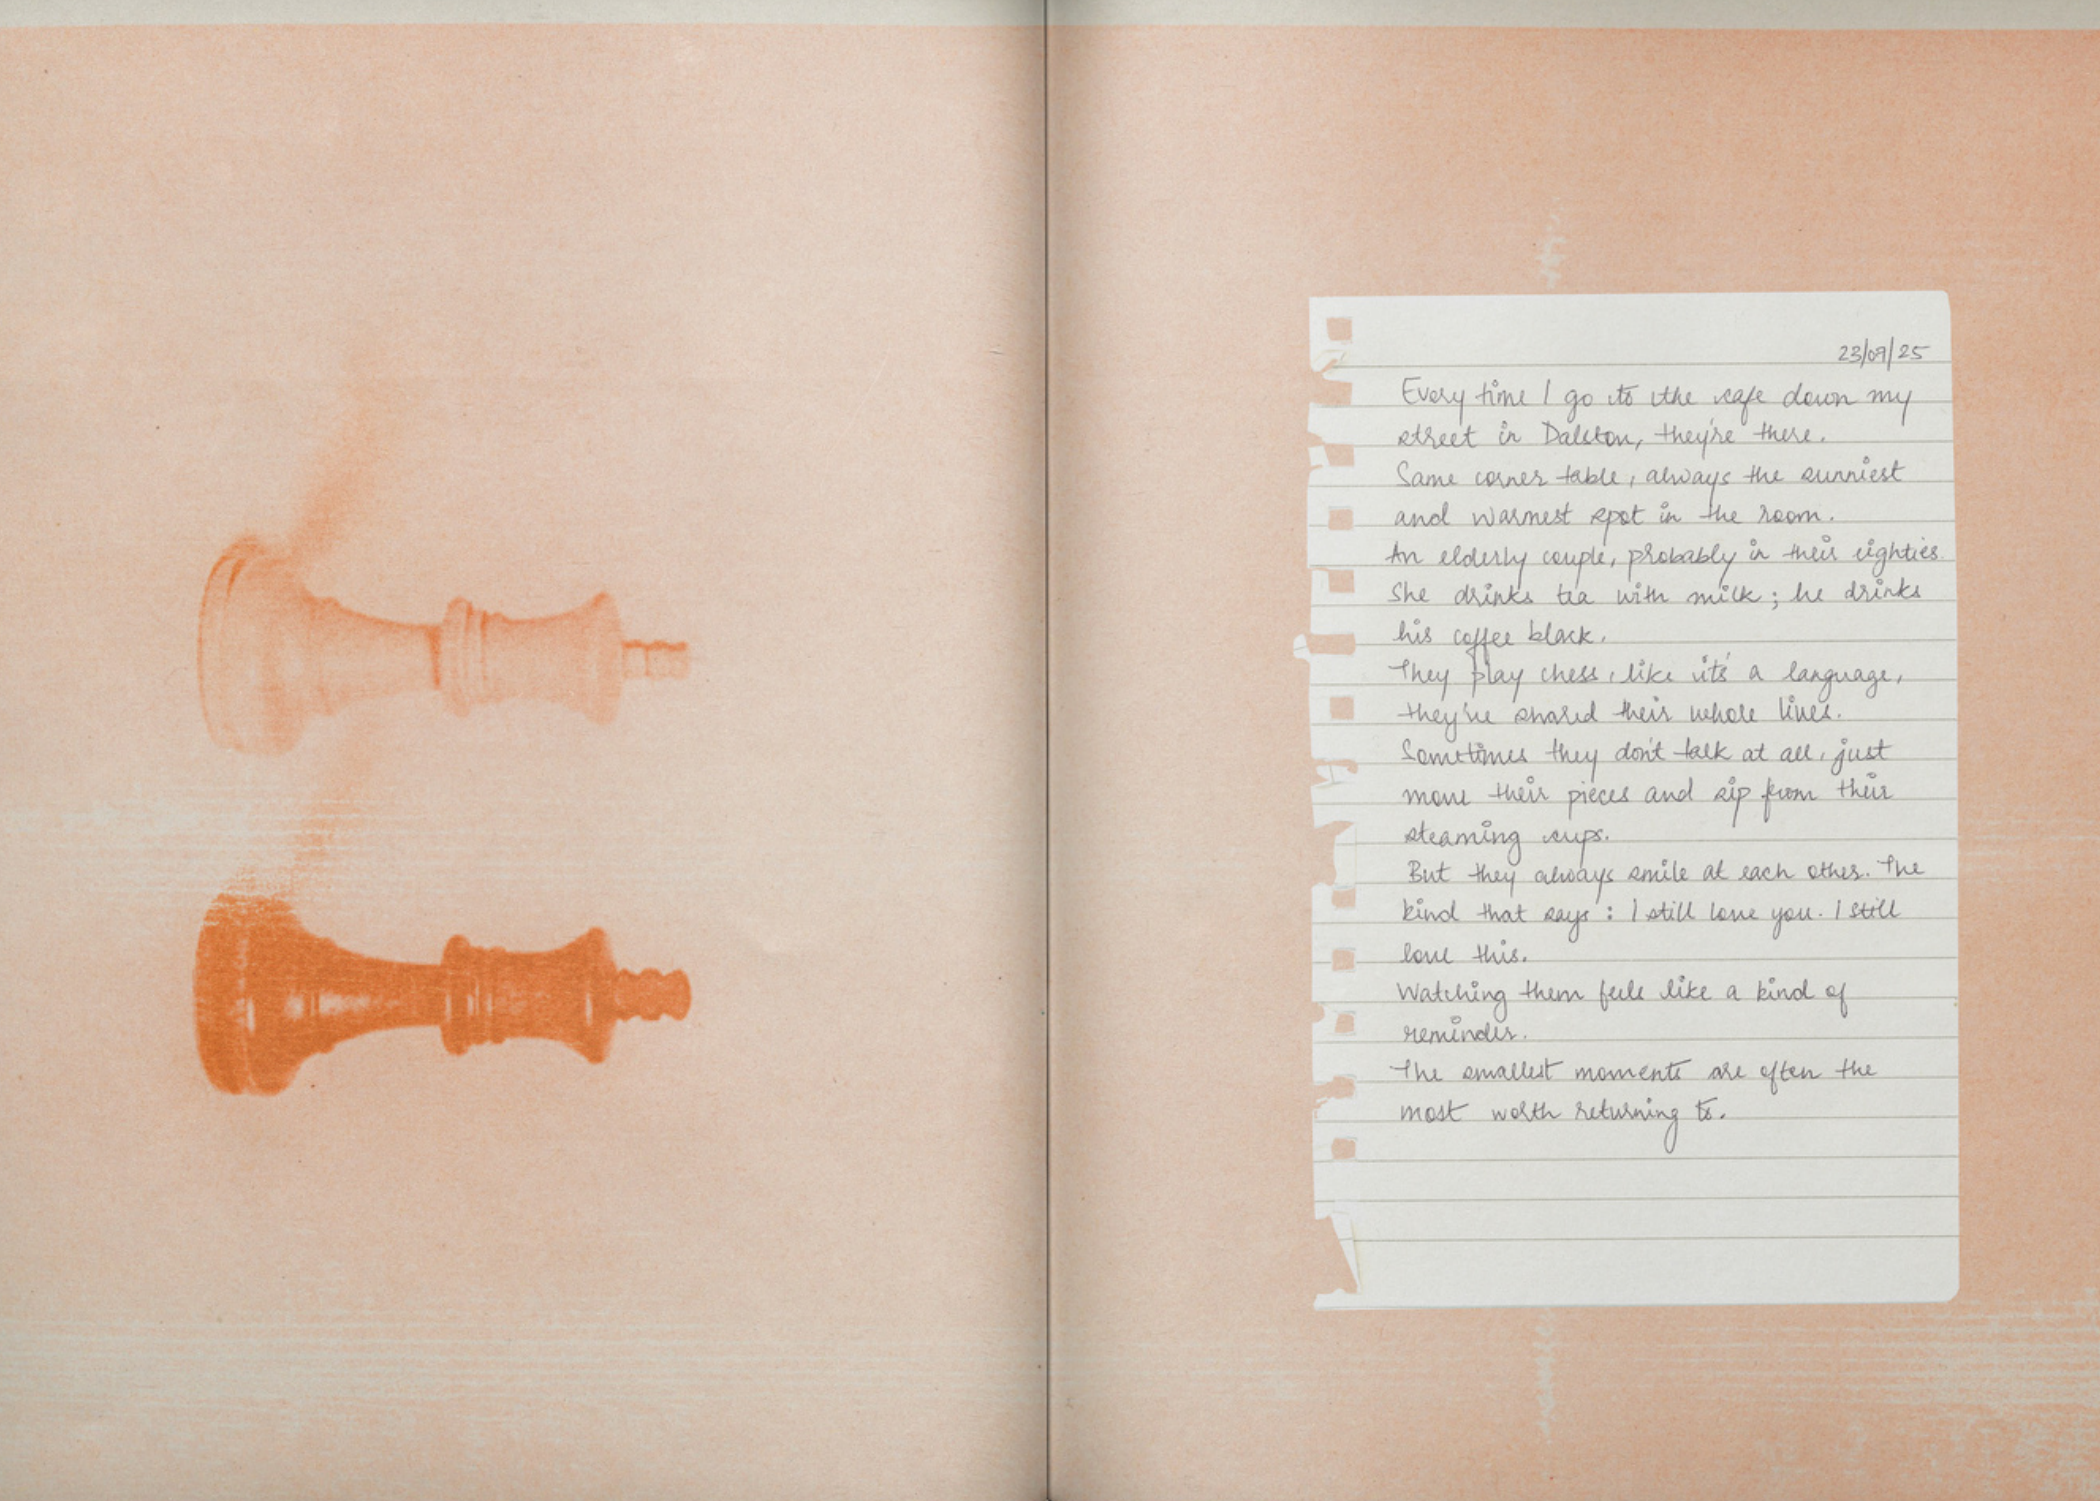 23/07/25
Every time I go to the cafe down my
street in Dalston, they're there.
Same corner table, always the sunniest
and warmest spot in the room.
An elderly couple, probably in their eighties.
She drinks tea with milk; he drinks
his coffee black.
They play chess, like it's a language,
they've shared their whole lives.
Sometimes they don't talk at all, just
move their pieces and sip from their
steaming cups.
But they always smile at each other. The
kind that says: I still love you. I still
love this.
Watching them feels like a kind of
reminder.
The smallest moments are often the
most worth returning to.